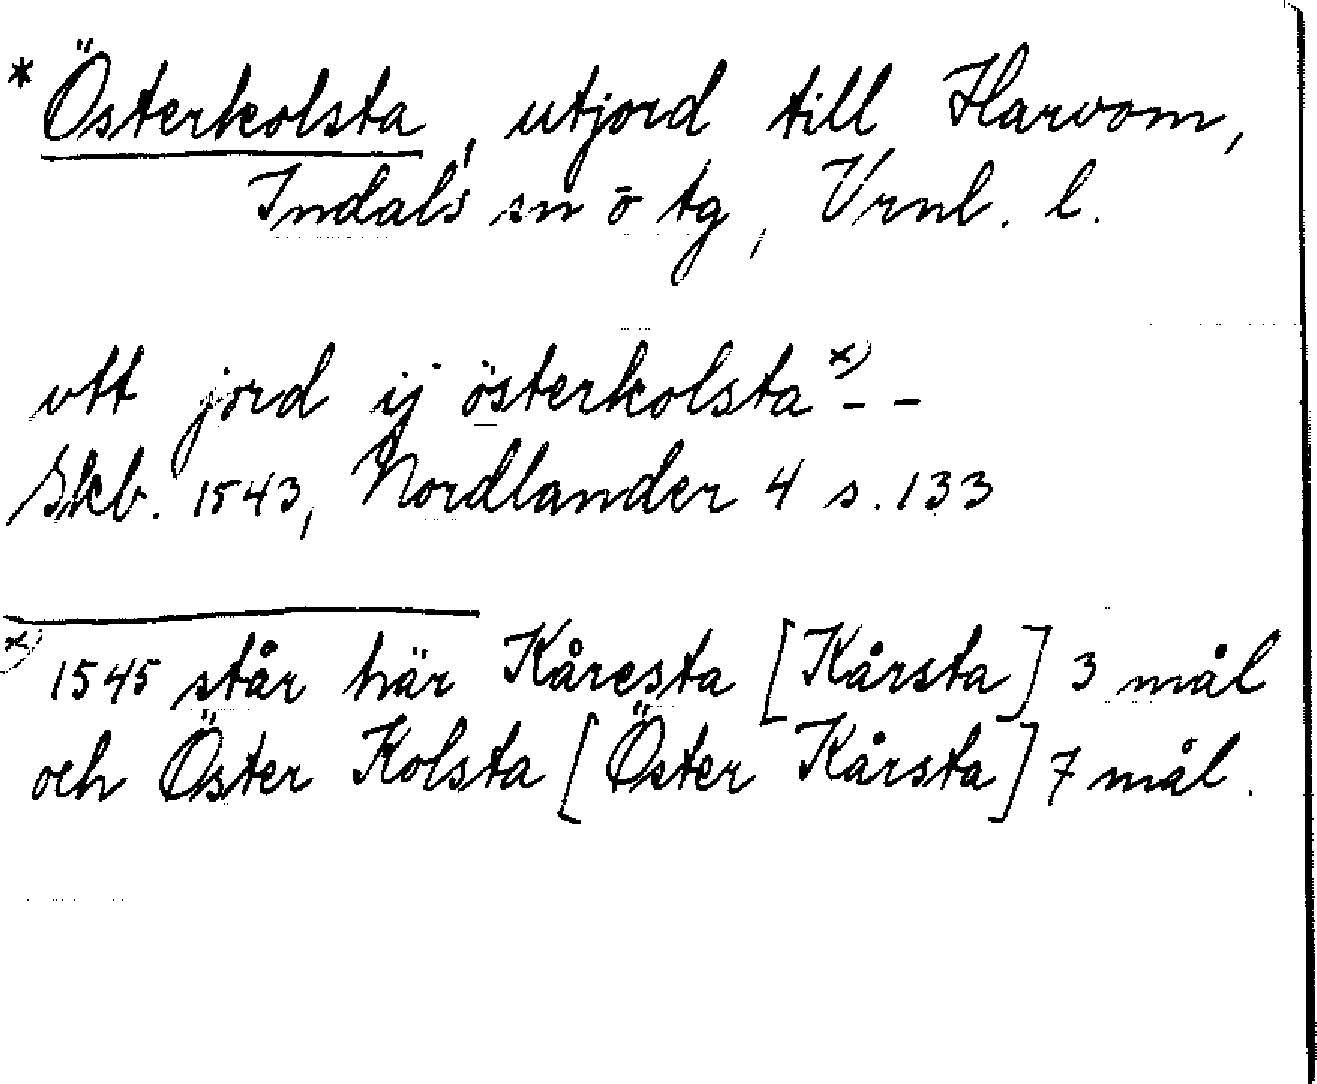 * Österkolsta, utjord till Harvom,
Indals sn o tg, Vrnl. l.
vtt jord ij österkolsta x) - -
Skb. 1543, Nordlander 4 s. 133
x) 1545 står här Kåresta [Kårsta] 3 mål
och Öster Kolsta [Öster Kårsta] 7 mål.